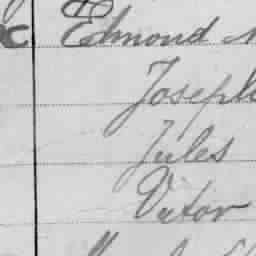 Edmond
Joseph
Jules
Victor